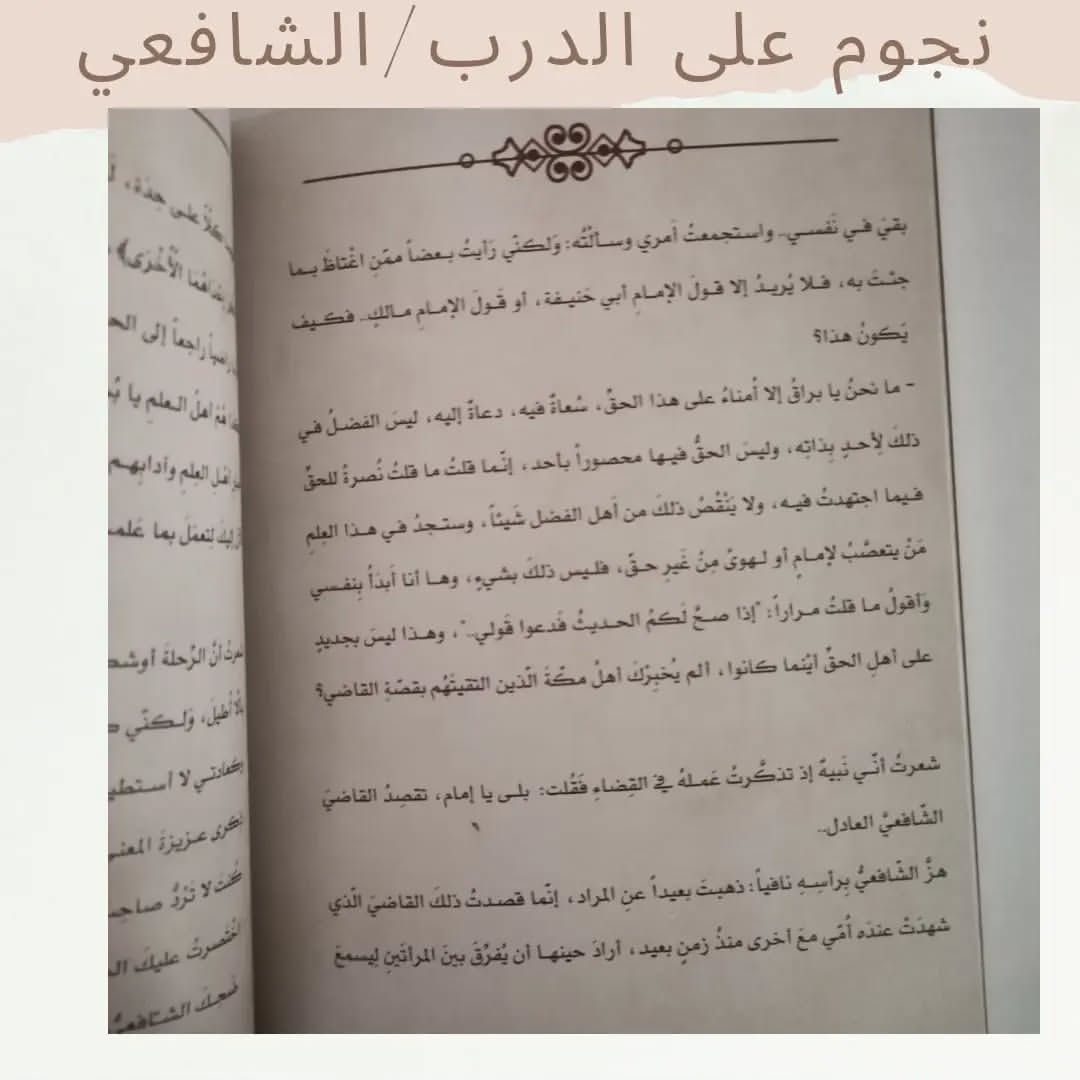 نجوم على الدرب/الشافعي
بقيَ في نَفسي.. واستجمعتُ أمري وسألتُه: وَلكنّي رَأيتُ بعضاً ممّنِ اغْتاظَ بما
جئتَ به، فلا يُريدُ إلا قولَ الإمامِ أبي حَنيفة، أو قَولَ الإمامِ مالكٍ.. فكيف
يَكونُ هذا؟
- ما نحنُ يا براقُ إلا أُمناءُ على هذا الحقِّ، سُعاةٌ فيه، دعاةٌ إليه، ليسَ الفضلُ في
ذلكَ لِأحدٍ بِذاتِه، وليسَ الحقُّ فيها محصوراً بأحد، إنّما قلتُ ما قلتُ نُصرةً للحقِّ
فيما اجتهدتُ فيه، ولا يَنْقُصُ ذلكَ من أهل الفضل شَيئاً، وستجدُ في هذا العِلمِ
مَنْ يتعصَّبُ لإمامٍ أو لهوىً مِنْ غَيرِ حقّ، فليس ذلكَ بشيءٍ، وها أنا أَبدَأُ بِنفسي
وَأقولُ ما قلتُ مراراً: "إذا صحَّ لَكمُ الحديثُ فَدعوا قَولي.."، وهذا ليسَ بجديدٍ
على أهلِ الحقِّ أيْنما كانوا، ألم يُخبِرْكَ أهلُ مكّةَ الّذين التقيتَهُم بقصّةِ القاضي؟
شعرتُ أنّي نَبيهٌ إذ تذكَّرتُ عَملهُ في القِضاءِ فَقُلت: بلى يا إمام، تقصِدُ القاضيَ
الشّافعيَّ العادل..
هزَّ الشّافعيُّ بِرأسِهِ نافياً: ذهبتَ بعِيداً عنِ المراد، إنّما قصدتُ ذلكَ القاضيَ الّذي
شهدَتْ عندَه أُمّي معَ أخرى منذُ زمنٍ بعيد، أرادَ حينها أن يُفرِّقَ بينَ المرأتَينِ لِيسمعَ
كلاً على حِدَة،
الأُخْرَى﴾
راجعاً إلى
أهلُ العلمِ يا
العِلمِ وآدابِهم
لتعمَلَ بما
أنَّ الرِّحلةَ
أُطيلَ، وَلكنّي
لا
عزيزةَ
كُنتَ لا تَرُدُّ
اخْتَصرتُ عليكَ
ضَحِكَ الشّافعيُّ